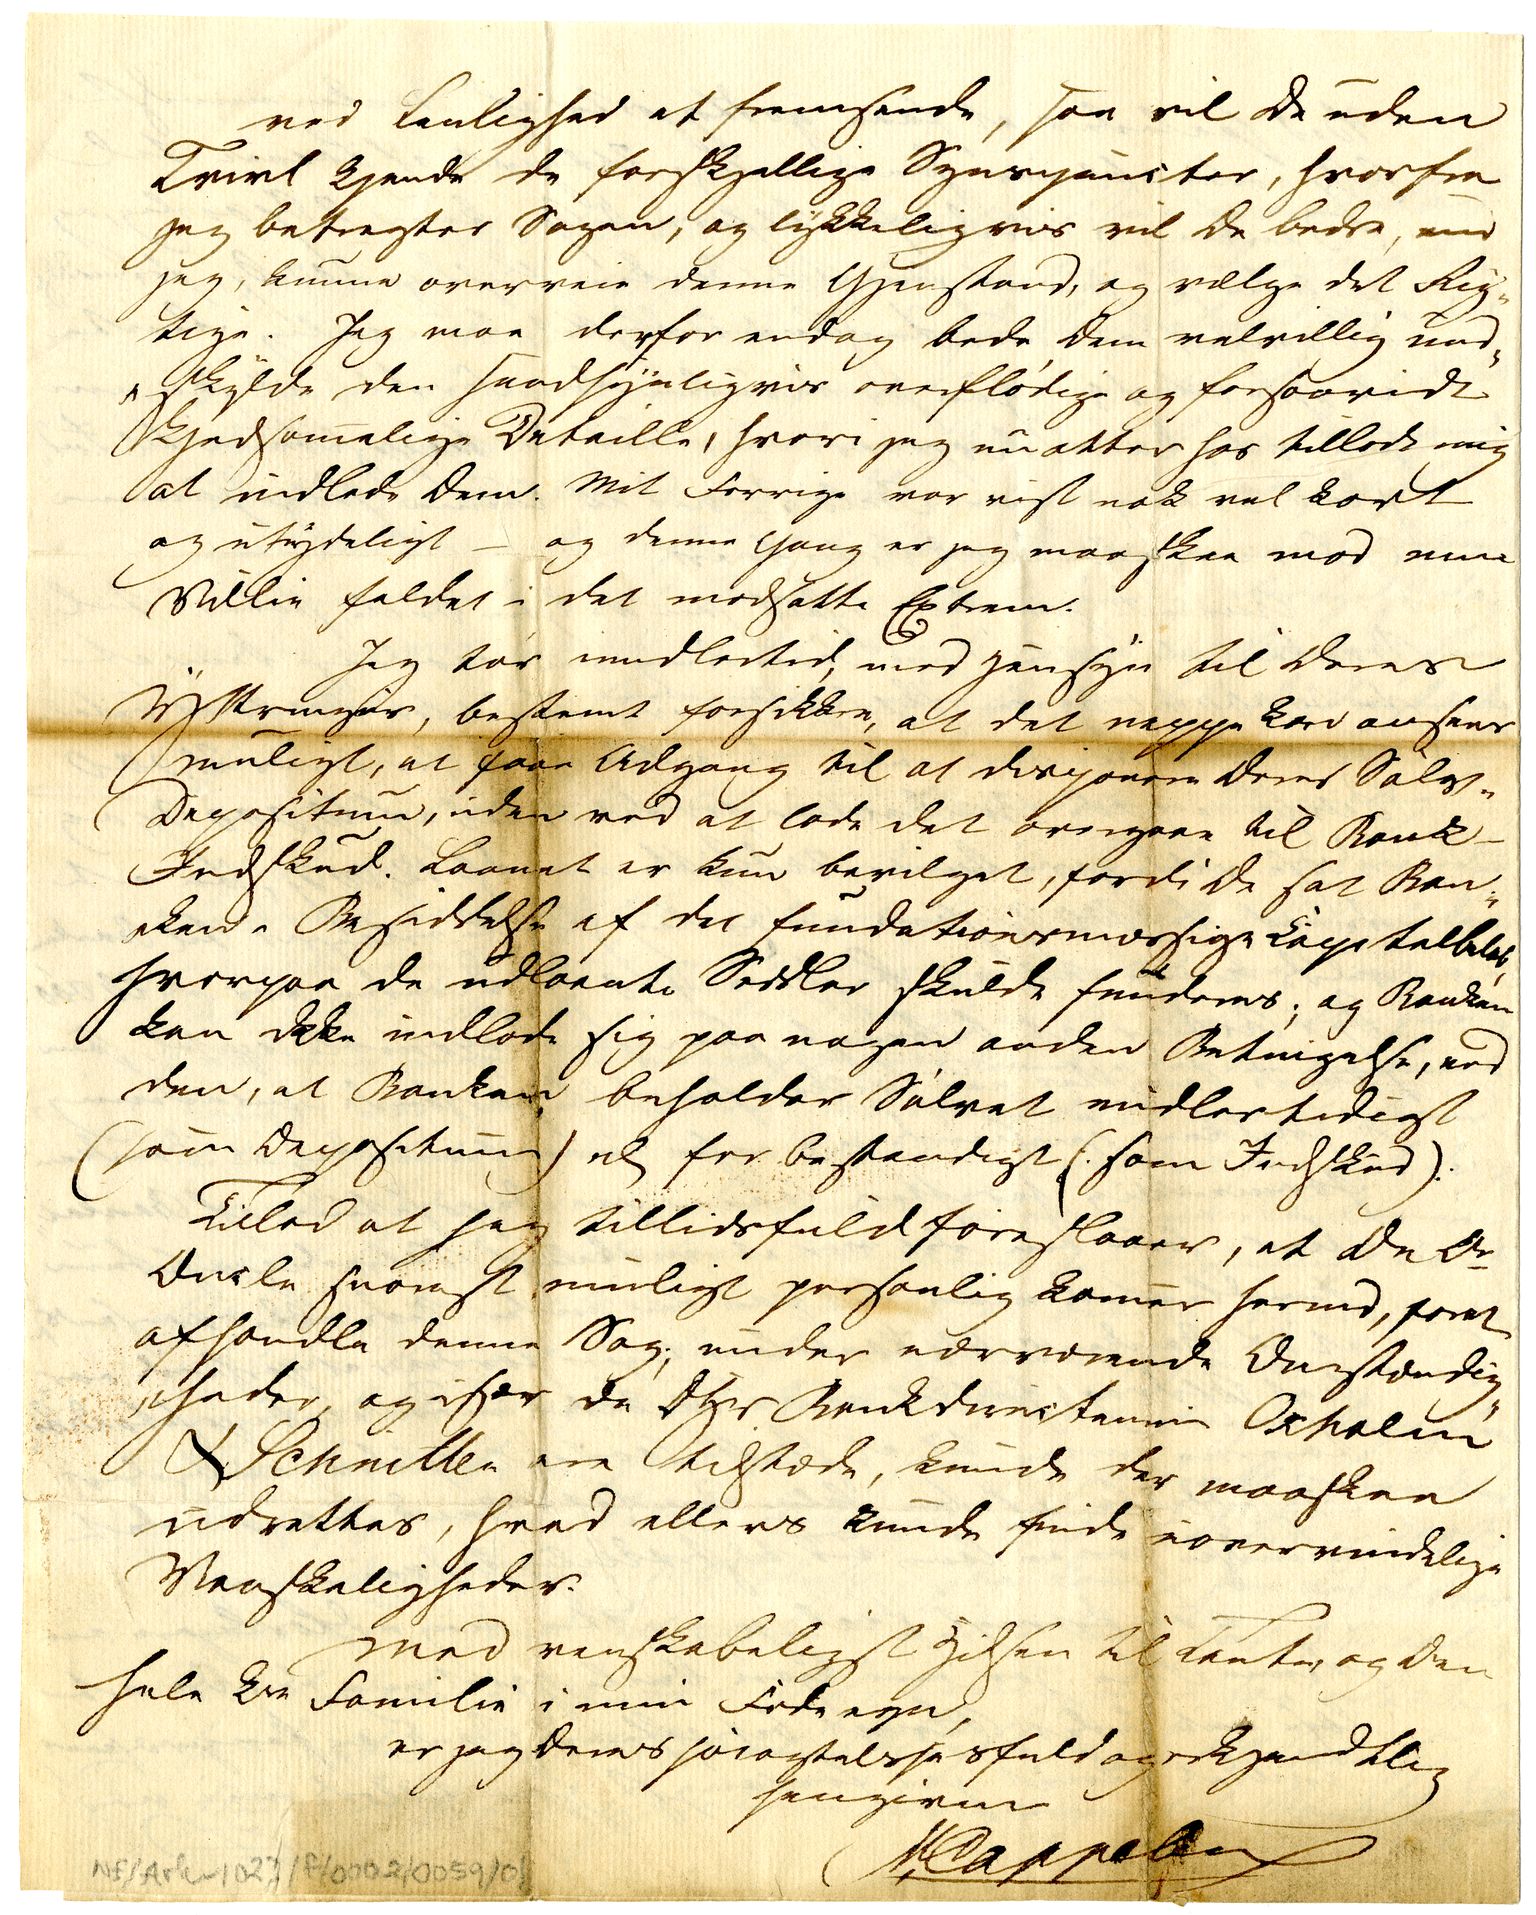 ved Leilighed at fremsende, saa vil De uden
Tvivl kjende de forskjellige Synspuncter, hvorfra
jeg betragter Sagen, og lykkeligviis vil De bedre, end
jeg, kunne overveie denne Gjenstand, og vælge det Rig-
tige. Jeg maa derfor endog bede Dem velvillig und-
skylde den sandsynligviis overflødige og forsaavidt
kjedsommelige Detaille, hvori jeg nu atter har tilladt mig
at indlede Dem. Mit Forrige var vist nok vel kort
og utydeligt – og denne Gang er jeg maaskee mod min
Villie faldet i det modsatte Extrem.
Jeg tør imidlertid, med Hensyn til Deres
Yttringer, bestemt forsikkre, at det neppe kan ansees
muligt, at faae Adgang til at disponere Deres Sølv-
Depositum, uden ved at lade det overgaae til Bank-
Indskud. Laanet er kun bevilget, fordi De sat Ban-
ken i Besiddelse af det fundationsmæssige Capitalbeløb,
hvorpaa de udlaante Sedler skulde funderes; og Banken
kan ikke indlade sig paa nogen anden Betingelse, end
den, at Banken beholder Sølvet midlertidigt
(som Depositum) ell. for bestandigt (: som Indskud).
Tillad at jeg tillidsfuld foreslaaer, at De Hr
Onkle snarest muligt personlig kommer herned, for at
afhandle denne Sag; under nærværende Omstændig-
heder, og især da DHrr Bankdirecteurerne Oxholm
& Schnitler ere tilstede, kunde der maaskee
udrettes, hvad ellers kunde finde uovervindelige
Vanskeligheder.
Med venskabeligst Hilsen til Tante, og den
hele kre Familie i min Fødeegn,
er jeg Deres høiagtelsesfuld og erkjendtlig
hengivne
Cappelen